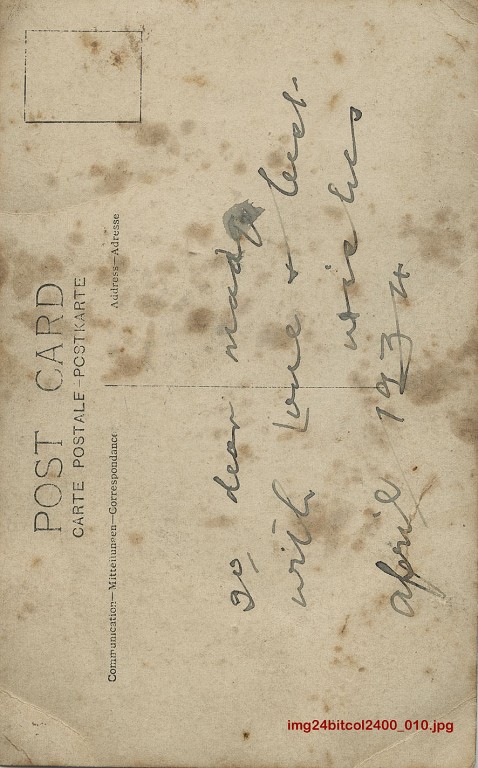 POST CARD
CARTE POSTALE–POSTKARTE
Communication–Mitteilungen–Correspondance
Address–Adresse
To dear madge
with Love + best
wishes
April 1934
img24bitcol2400_010.jpg